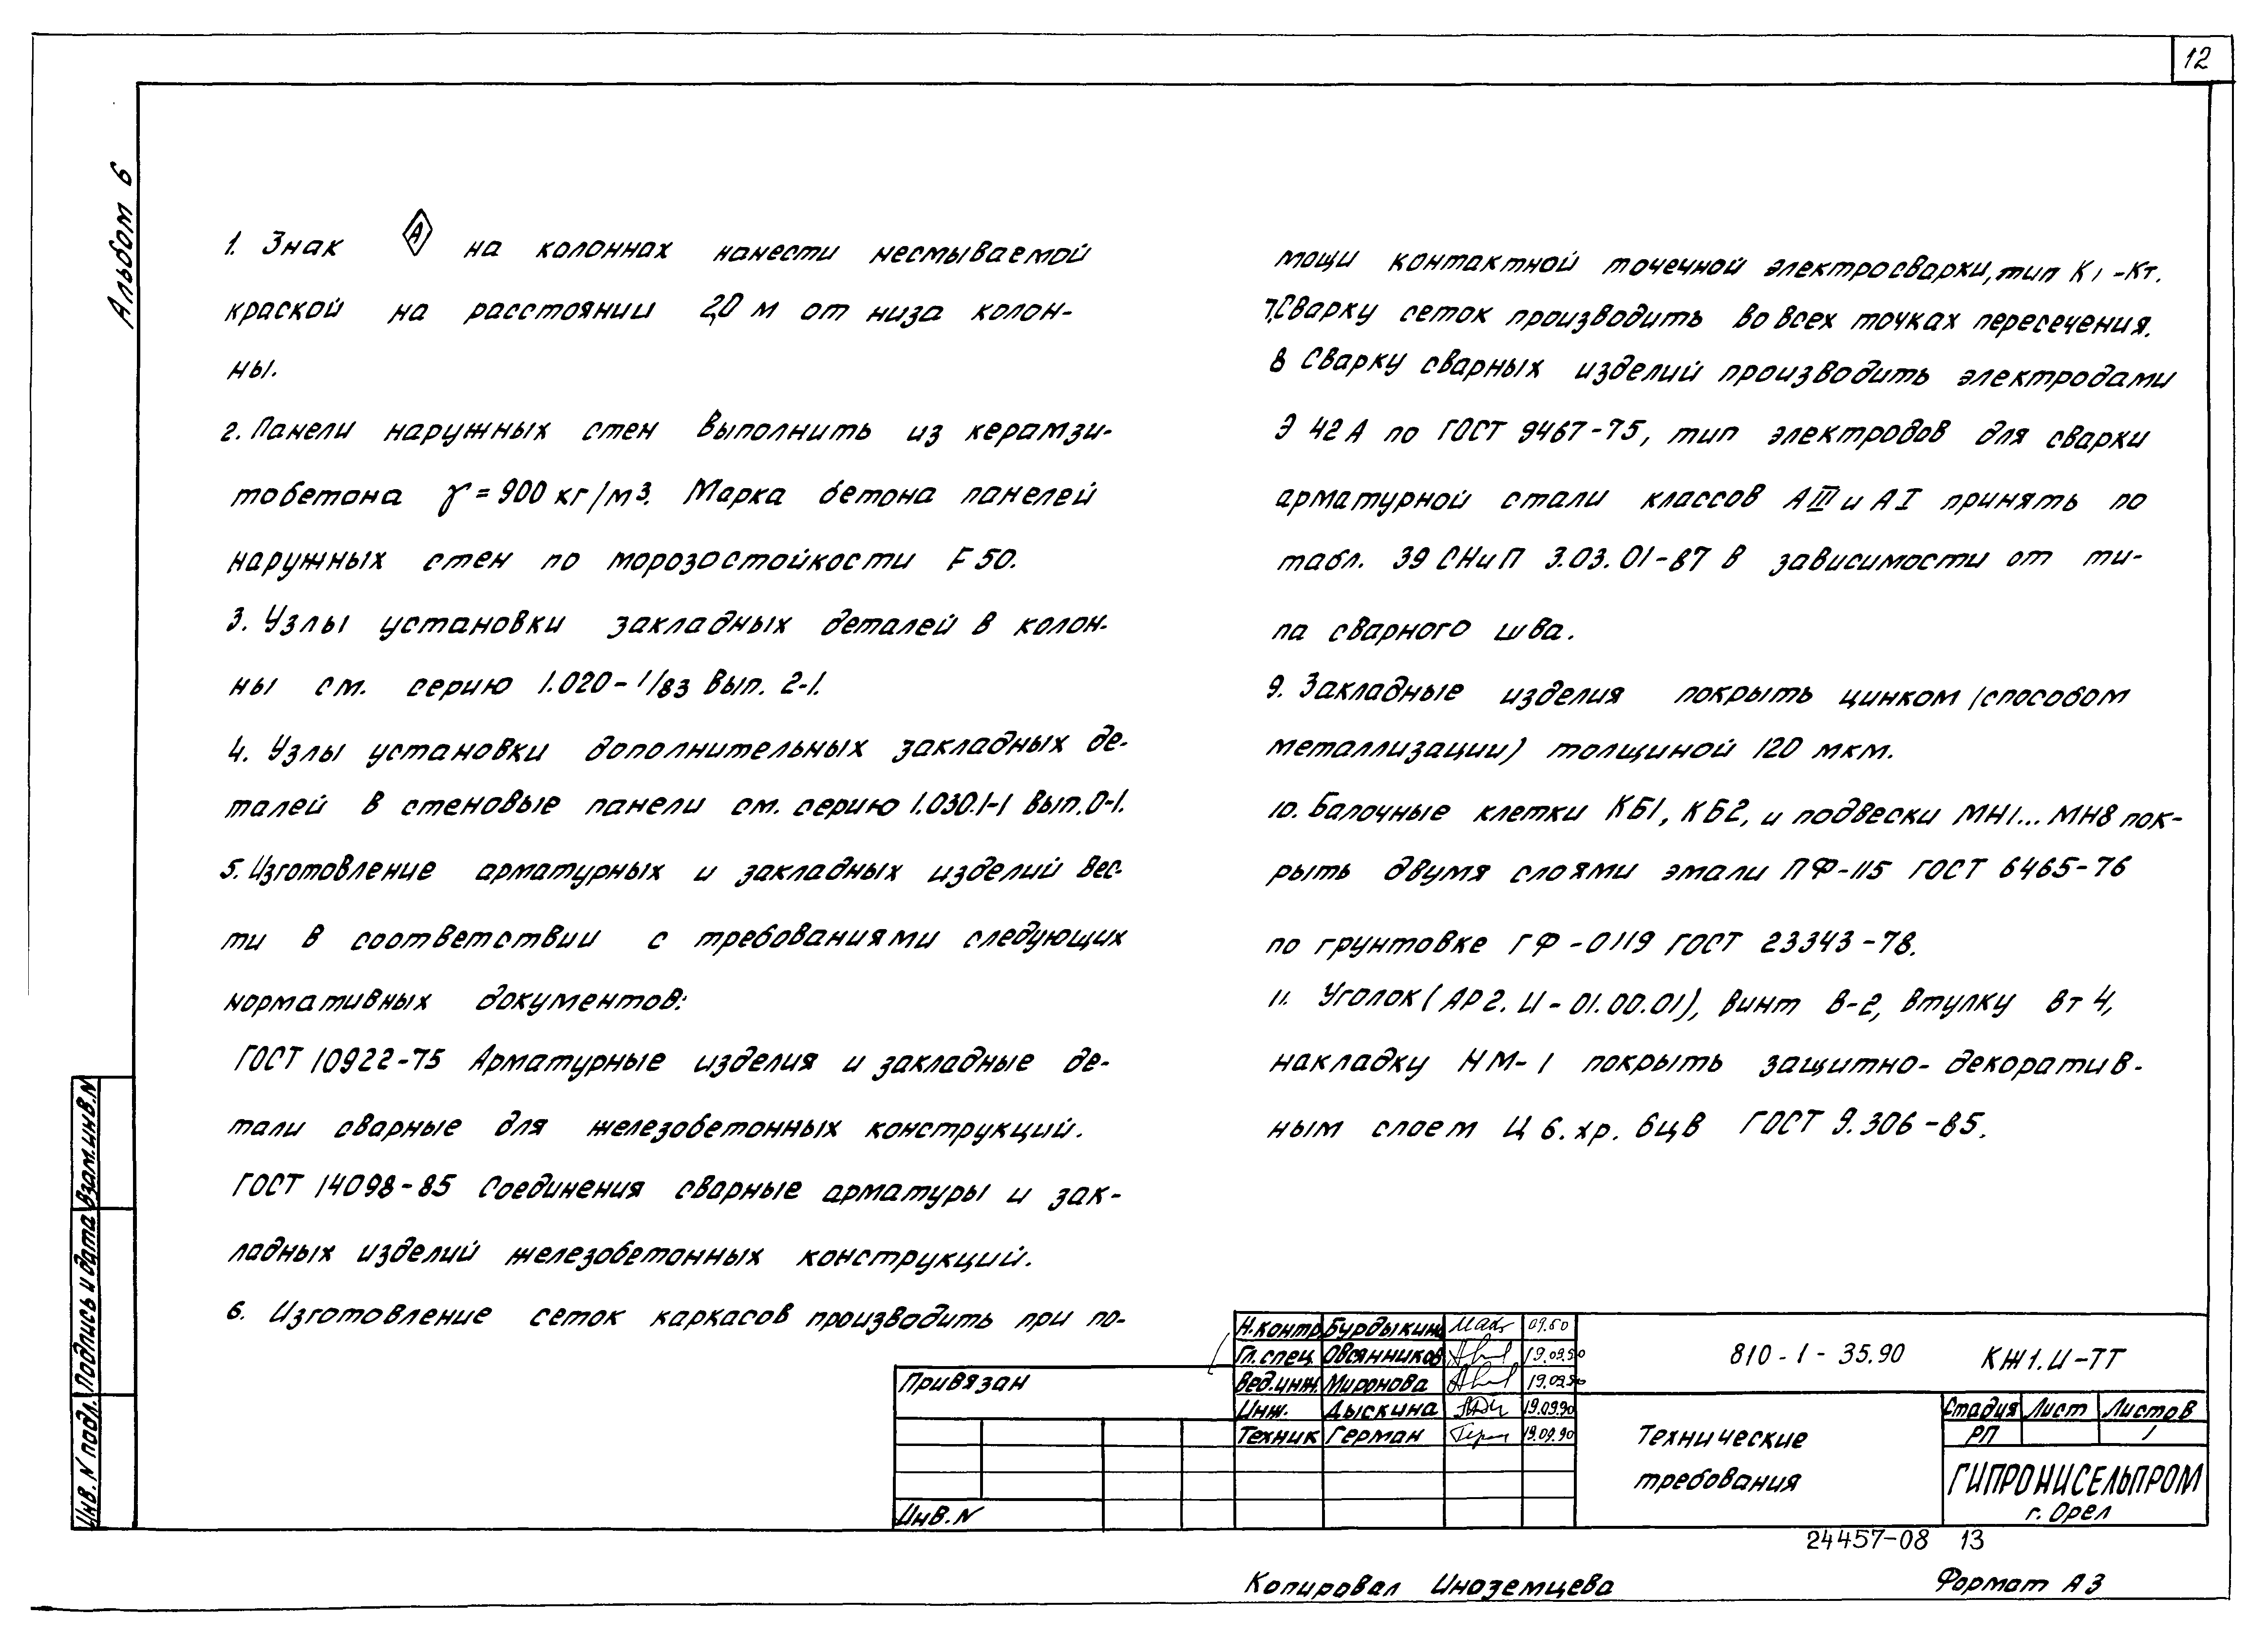 12
Альбом 6
1. Знак А на колоннах нанести несмываемой
краской на расстоянии 2,0 м от низа колон-
ны.
2. Панели наружных стен выполнить из керамзи-
тобетона γ = 900 кг/м3. Марка бетона панелей
наружных стен по морозостойкости F 50.
3. Узлы установки закладных деталей в колон-
ны см. серию 1.020-1/83 вып. 2-1.
4. Узлы установки дополнительных закладных де-
талей в стеновые панели см. серию 1.030.1-1 вып.0-1.
5. Изготовление арматурных и закладных изделий вес-
ти в соответствии с требованиями следующих
нормативных документов:
ГОСТ 10922-75 Арматурные изделия и закладные де-
тали сварные для железобетонных конструкций.
ГОСТ 14098-85 Соединения сварные арматуры и зак-
ладных изделий железобетонных конструкций.
6. Изготовление сеток каркасов производить при по-
мощи контактной точечной электросварки, тип К1-Кт.
7. Сварку сеток производить во всех точках пересечения.
8 Сварку сварных изделий производить электродами
Э 42 А по ГОСТ 9467-75, тип электродов для сварки
арматурной стали классов АIII и АI принять по
табл. 39 СНиП 3.03.01-87 в зависимости от ти-
па сварного шва.
9. Закладные изделия покрыть цинком /способом
металлизации) толщиной 120 мкм.
10. Балочные клетки КБ1, КБ2, и подвески МН1...МН8 пок-
рыть двумя слоями эмали ПФ-115 ГОСТ 6465-76
по грунтовке ГФ-0119 ГОСТ 23343-78.
11. Уголок (АР2.И-01.00.01), винт В-2, втулку вт 4,
накладку НМ-1 покрыть защитно-декоратив-
ным слоем Ц 6. хр. бцв ГОСТ 9.306-85.
Взам.инв.N
Подпись и дата
Инв. N подл.
Привязан
Инв.N
Н.контр Бурдыкин 09.80
Гл.спец. Овсянников 19.09.90
Вед.инж. Миронова 19.09.90
Инж. Дыскина 19.09.90
Техник Герман 19.09.90
810-1-35.90 КЖ1.И-ТТ
Технические
требования
Стадия Лист Листов
РП 1
ГИПРОНИСЕЛЬПРОМ
г. Орел
24457-08 13
Копировал Иноземцева Формат А3